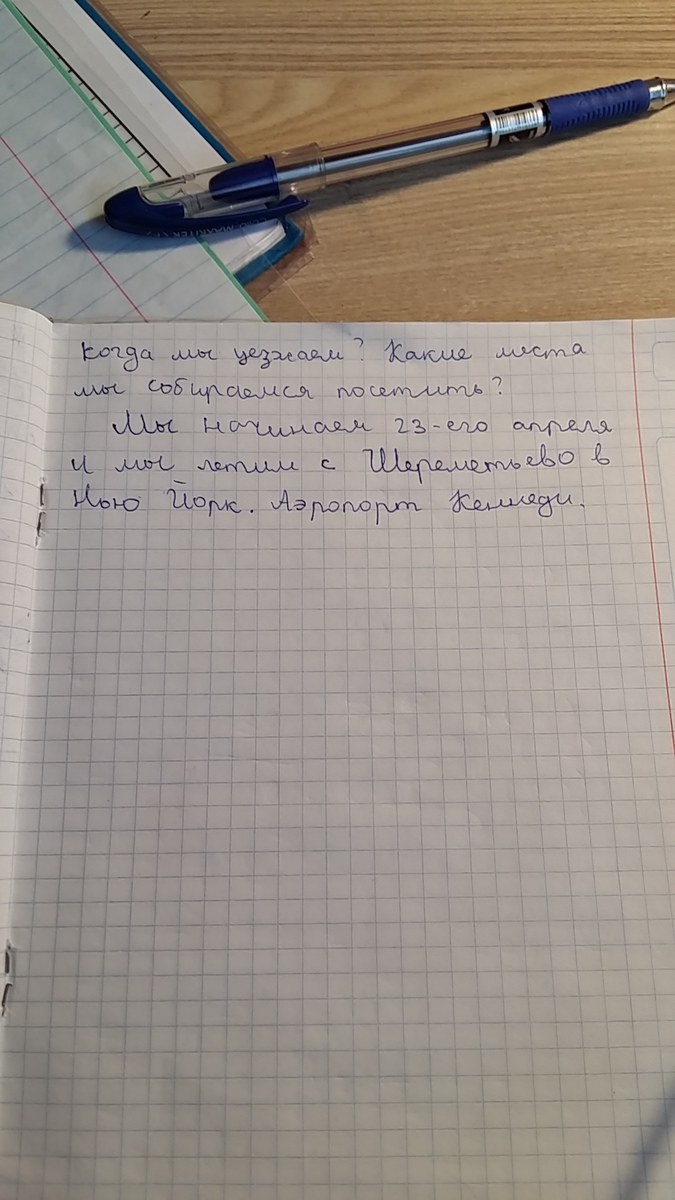 Когда мы уезжаем? Какие места
мы собираемся посетить?
Мы начинаем 23-его апреля
и мы летим с Шереметьево в
Нью Йорк. Аэропорт Кеннеди.